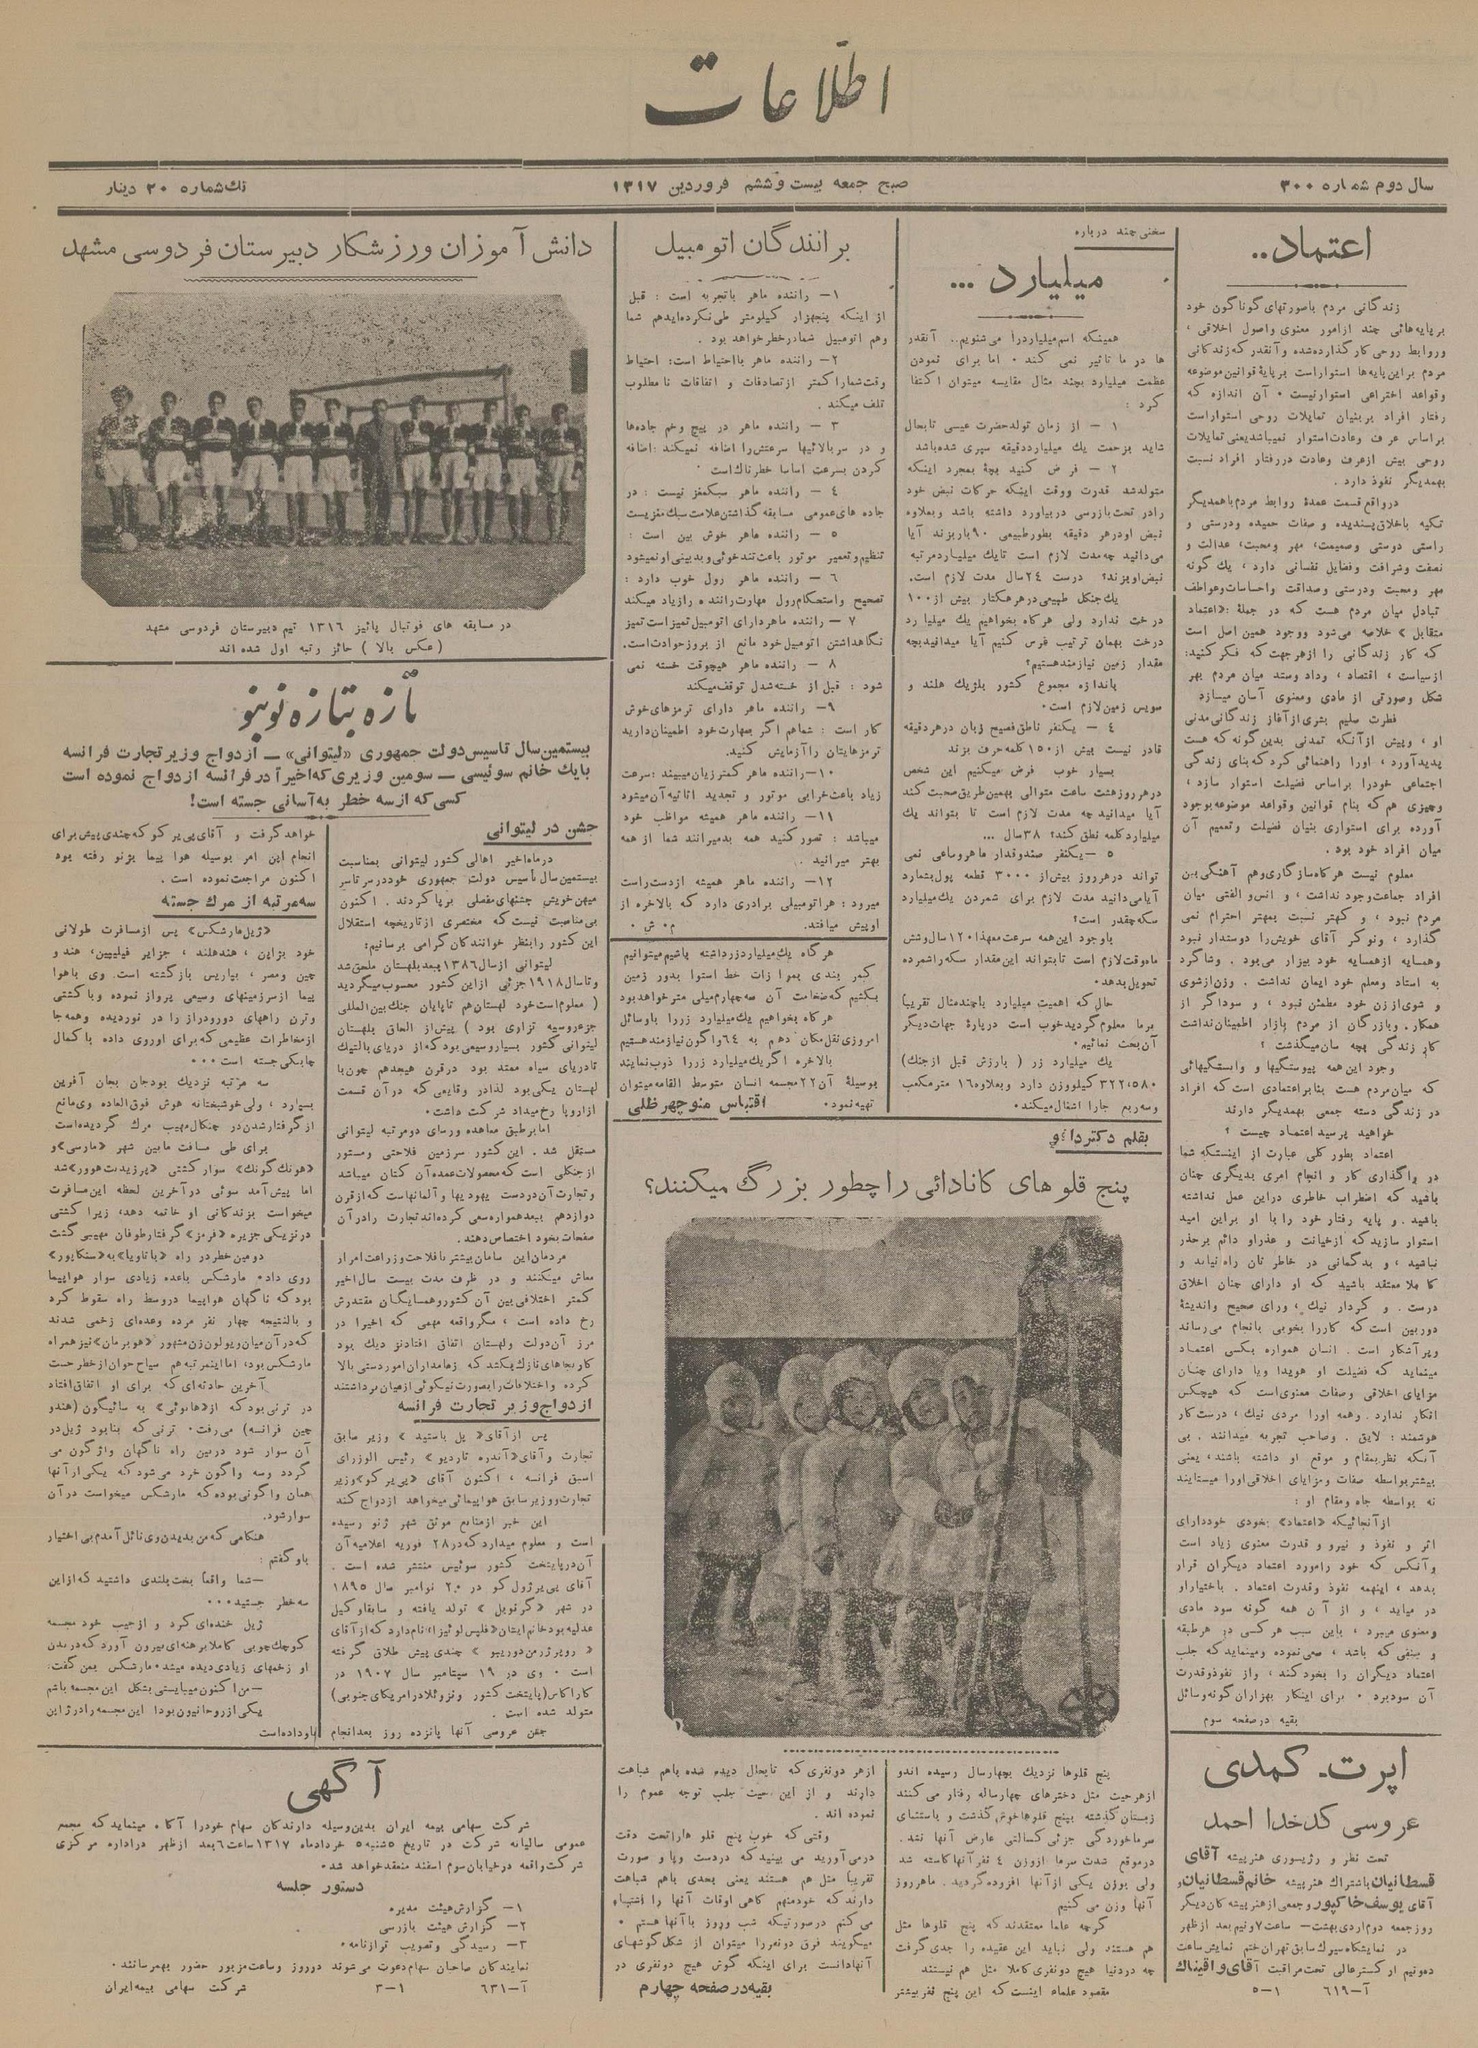 اطلاعات
سال دوم شماره ۳۰۰
صبح جمعه بیست و ششم فروردین ۱۳۱۷
تك شماره ۲۰ دینار
اعتماد..
زندگانی مردم باصورتهای گوناگون خود
برپایه‌هائی چند ازامور معنوی واصول اخلاقی ،
وروابط روحی کارگذارده‌شده و آنقدر که زندگانی
مردم براین پایه‌ها استواراست برپایهٔ قوانین موضوعه
وقواعد اختراعی استوارنیست . آن اندازه که
رفتار افراد بربنیان تمایلات روحی استواراست
براساس عرف وعادت استوار نمیباشد یعنی تمایلات
روحی بیش ازعرف وعادت دررفتار افراد نسبت
بهمدیگر نفوذ دارد .
درواقع قسمت عمدهٔ روابط مردم باهمدیگر
تکیه باخلاق پسندیده و صفات حمیده ودرستی و
راستی دوستی وصمیمت، مهر ومحبت، عدالت و
نصفت وشرافت وفضایل نفسانی دارد ، یك گونه
مهر ومحبت ودرستی وصداقت واحساسات وعواطف
تبادل میان مردم هست که در جملهٔ: «اعتماد
متقابل» خلاصه می‌شود ووجود همین اصل است
که کار زندگانی را ازهرجهت که فکرکنید:
ازسیاست ، اقتصاد ، وداد وستد میان مردم بهر
شکل وصورتی از مادی ومعنوی آسان میسازد
فطرت سلیم بشری ازآغاز زندگانی مدنی
او ، وپیش ازآنکه تمدنی بدین گونه که هست
پدیدآورد ، اورا راهنمائی کرد که بنای زندگی
اجتماعی خودرا براساس فضیلت استوار سازد ،
وچیزی هم که بنام قوانین وقواعد موضوعه بوجود
آورده برای استواری بنیان فضیلت وتعمیم آن
میان افراد خود بود .
معلوم نیست هرگاه سازگاری وهم آهنگی بین
افراد جماعت وجود نداشت ، وانس والفتی میان
مردم نبود ، و کهتر نسبت بمهتر احترام نمی
گذارد ، ونوکر آقای خویش را دوستدار نبود
وهمسایه ازهمسایه خود بیزار می‌بود . وشاگرد
به استاد ومعلم خود ایمان نداشت . وزن ازشوی
و شوی اززن خود مطمئن نبود ، و سوداگر از
همکار . وبازرگان از مردم بازار اطمینان نداشت
کار زندگی بچه سان میگذشت ؟
وجود این همه پیوستگیها و وابستگیهائی
که میان مردم هست بنا براعتمادی است که افراد
در زندگی دسته جمعی بهمدیگر دارند
خواهید پرسید اعتماد چیست ؟
اعتماد بطور کلی عبارت از اینستکه شما
در واگذاری کار و انجام امری بدیگری چنان
باشید که اضطراب خاطری دراین عمل نداشته
باشید . و پایه رفتار خود را با او براین امید
استوار سازید که ازخیانت و عذراو دائم برحذر
نباشید ، و بدگمانی در خاطر تان راه نیابد و
کاملا معتقد باشید که او دارای چنان اخلاق
درست . و کردار نیك ، ورای صحیح واندیشهٔ
دوربین است که کاررا بخوبی بانجام می‌رساند
وپرآشکار است . انسان همواره بکسی اعتماد
مینماید که فضیلت او هویدا ویا دارای چنان
مزایای اخلاقی وصفات معنوی‌است که هیچکس
انکار ندارد . وهمه اورا مردی نیك ، درست کار
هوشمند : لایق . وصاحب تجربه میدانند . بی
آنکه نظربمقام و موقع او داشته باشند ، یعنی
بیشتر بواسطه صفات ومزایای اخلاقی اورا میستایند
نه بواسطه جاه ومقام او :
ازآنجائیکه «اعتماد» بخودی خوددارای
اثر و نفوذ و نیرو و قدرت معنوی زیاد است
وآنکس که خود راه‌ورد اعتماد دیگران قرار
بدهد ، اینهمه نفوذ وقدرت اعتماد . باختیاراو
در میاید ، و از آن همه گونه سود مادی
ومعنوی میبرد ، باین سبب هرکسی در هرطبقه
و صنفی که باشد ، سعی نموده ومینماید که جلب
اعتماد دیگران را بخودکند ، واز نفوذوقدرت
آن سودبرد . برای اینکار بهزاران گونه وسائل
بقیه درصفحه سوم
اپرت - کمدی
عروسی کدخدا احمد
تحت نظر و رژیسوری هنرپیشه آقای
قسطانیان باشتراك هنرپیشه خانم قسطانیان و
آقای یوسف خاکپور وجمعی ازهنرپیشه کان دیگر
روزجمعه دوم اردی بهشت - ساعت ۷ ونیم بعد ازظهر
در نمایشگاه سیرك سابق تهران ختم نمایش ساعت
ده‌ونیم ارکسترعالی تحت مراقبت آقای واقیناك
آ-۶۱۹ ۱-۵
سخنی چند درباره
میلیارد ...
همینکه اسم میلیاردرا می‌شنویم.. آنقدر
ها در ما تاثیر نمی کند . اما برای نمودن
عظمت میلیارد بچند مثال مقایسه میتوان اکتفا
کرد :
۱ - از زمان تولدحضرت عیسی تابحال
شاید بزحمت یك میلیارددقیقه سپری شده‌باشد
۲ - فرض کنید بچهٔ بمجرد اینکه
متولدشد قدرت ووقت اینکه حرکات نبض خود
رادر تحت بازرسی دربیاورد داشته باشد وبعلاوه
نبض اودرهر دقیقه بطورطبیعی ۹۰ باربزند آیا
می‌دانید چه‌مدت لازم است تایك میلیاردمرتبه
نبض اوبزند؟ درست ۲۴ سال مدت لازم است.
یك جنگل طبیعی درهر هکتار بیش از۱۰۰
درخت ندارد ولی هرگاه بخواهیم یك میلیارد
درخت بهمان ترتیب فرس کنیم آیا میدانیدبچه
مقدار زمین نیازمندهستیم؟
باندازه مجموع کشور بلژیك هلند و
سویس زمین لازم است.
۴ - یکنفر ناطق فصیح زبان درهردقیقه
قادر نیست بیش از۱۵۰ کلمه حرف بزند
بسیار خوب فرض میکنیم این شخص
درهرروزهشت ساعت متوالی بهمین طریق صحبت کند
آیا میدانید چه مدت لازم است تا بتواند یك
میلیاردکلمه نطق کند؟ ۳۸ سال ...
۵ - یکنفر صندوقدار ماهر وساعی نمی
تواند درهرروز بیش از ۳۰۰۰ قطعه پول بشمارد
آیا می‌دانید مدت لازم برای شمردن یك میلیارد
سکه چقدر است؟
باوجود این همه سرعت معهذا ۱۲۰ سال وشش
ماه وقت لازم است تا بتواند این مقدار سکه راشمرده
تحویل بدهد.
حال که اهمیت میلیارد باچندمثال تقریباً
برما معلوم گردیدخوب است دربارهٔ جهات دیگر
آن بحث نمائیم.
یك میلیارد زر ( بارزش قبل ازجنك)
۳۲۲،۵۸۰ کیلووزن دارد وبعلاوه ۱۶ مترمکعب
وسه ربع جارا اشغال میکند.
برانندگان اتومبیل
۱- راننده ماهر باتجربه است : قبل
از اینکه پنجهزار کیلومتر طی نکرده‌ایدهم شما
وهم اتومبیل شمادرخطرخواهد بود .
۲- راننده ماهر بااحتیاط است: احتیاط
وقت شماراکمتر ازتصادفات و اتفاقات نامطلوب
تلف میکند .
۳ - راننده ماهر در پیچ وخم جاده‌ها
و در سربالائیها سرعتش را اضافه نمیکند :اضافه
کردن بسرعت اساسا خطرناك است
۴ - راننده ماهر سبکمغز نیست : در
جاده های عمومی مسابقه گذاشتن علامت سبك مغزیست
۵ - راننده ماهر خوش بین است :
تنظیم وتعمیر موتور باعث تندخوئی وبدبینی او نمیشود
۶ - راننده ماهر رول خوب دارد :
تصحیح واستحکام رول مهارت راننده رازیاد میکند
۷ - راننده ماهر دارای اتومبیل تمیز است تمیز
نگاهداشتن اتومبیل خود مانع از بروزحوادث است.
۸ - راننده ماهر هیچوقت خسته نمی
شود : قبل از خسته‌شدن توقف میکند
۹- راننده ماهر دارای ترمزهای خوش
کار است : شماهم اگر بمهارت خود اطمینان دارید
ترمزهایتان راآزمایش کنید.
۱۰-راننده ماهر کمترزیان میبیند :سرعت
زیاد باعث خرابی موتور و تجدید اثاثیه آن میشود
۱۱- راننده ماهر همیشه مواظب خود
میباشد : تصورکنید همه بدمیرانند شما از همه
بهتر میرانید .
۱۲- راننده ماهر همیشه ازدست راست
میرود : هراتومبیلی برادری دارد که بالاخره از
اوپیش میافتد. م. ش .
هرگاه یك میلیاردزرداشته باشیم میتوانیم
کمر بندی بموازات خط استوا بدور زمین
بکشیم که ضخامت آن سه چهارم میلی متر خواهدبود
هرگاه بخواهیم یك میلیارد زررا باوسائل
امروزی نقل مکان دهیم به ۶۴ واگون نیازمند هستیم
بالاخره اگریك میلیارد زررا ذوب نمایند
بوسیلهٔ آن ۲۲ مجسمه انسان متوسط القامه میتوان
تهیه نمود. اقتباس منوچهرظلی
بقلم دکتر دافو
پنج قلوهای کانادائی را چطور بزرگ میکنند؟
پنج قلوها نزدیك بچهارسال رسیده اندو
ازهرحیث مثل دخترهای چهارساله رفتار می کنند
زمستان گذشته بپنج قلوهاخوش گذشت و باستثنای
سرماخوردگی جزئی کسالتی عارض آنها نشد.
درموقع شدت سرما ازوزن ۴ نفرآنهاکاسته شد
ولی بوزن یکی ازآنها افزوده گردید. ماهرروز
آنها را وزن می کنیم
گرچه علما معتقدند که پنج قلوها مثل
هم هستند ولی نباید این عقیده را جدی گرفت
چه دردنیا هیچ دونفری کاملا مثل هم نیستند
مقصود علماء اینست که این پنج نفربیشتر
ازهر دونفری که تابحال دیده شده باهم شباهت
دارند و از این حیث جلب توجه عموم را
نموده اند .
وقتی که خوب پنج قلو هاراتحت دقت
درمی‌آورید می بینید که دردست وپا و صورت
تقریباً مثل هم هستند یعنی بحدی باهم شباهت
دارند که خودمنهم گاهی اوقات آنها را اشتباه
می کنم درصورتیکه شب وروز باآنها هستم .
میگویند فرق دونفررا میتوان از شکل گوشهای
آنهادانست برای اینکه گوش هیچ دونفری در
بقیه در صفحه چهارم
دانش آموزان ورزشکار دبیرستان فردوسی مشهد
در مسابقه های فوتبال پائیز ۱۳۱۶ تیم دبیرستان فردوسی مشهد
(عکس بالا) حائز رتبه اول شده اند
تازه بتازه نوبنو
بیستمین سال تاسیس دولت جمهوری «لیتوانی» - ازدواج وزیر تجارت فرانسه
بایك خانم سوئیسی - سومین وزیری که اخیراً در فرانسه ازدواج نموده است
کسی که از سه خطر به آسانی جسته است!
جشن در لیتوانی
درماه اخیر اهالی کشور لیتوانی بمناسبت
بیستمین سال تأسیس دولت جمهوری خوددرسرتاسر
میهن خویش جشنهای مفصلی برپا کردند . اکنون
بی‌مناسبت نیست که مختصری ازتاریخچه استقلال
این کشور رابنظر خوانندگان گرامی برسانیم :
لیتوانی ازسال ۱۳۸۶ ببعد بلهستان ملحق شد
وتاسال ۱۹۱۸ جزئی ازاین کشور محسوب میگردید
( معلوم است خود لهستان هم تاپایان جنك بین المللی
جزءروسیه تزاری بود ) پیش از الحاق بلهستان
لیتوانی کشور بسیار وسیعی بود که از دریای بالتیك
تادریای سیاه ممتد بود درقرن هیجدهم چون با
لهستان یکی بود لذادر وقایعی که درآن قسمت
ازاروپا رخ میداد شرکت داشت.
اما برطبق معاهده ورسای دومرتبه لیتوانی
مستقل شد. این کشور سرزمین فلاحتی ومستور
ازجنگلی است که محصولات عمده آن کتان میباشد
و تجارت آن دردست یهودیها و آلمانهاست که ازقرن
دوازدهم ببعد همواره سعی کرده‌اند تجارت رادرآن
صفحات بخود اختصاص دهند.
مردمان این سامان بیشتر بافلاحت وزراعت امرار
معاش میکنند و در ظرف مدت بیست سال اخیر
کمتر اختلافی بین آن کشور وهمسایگان مقتدرش
رخ داده است ، مگر واقعه مهمی که اخیرا در
مرز آن دولت ولهستان اتفاق افتادنز دیك بود
کاربجاهای نازك بکشد که زمامداران امور دستی بالا
کرده واختلافات رابصورت نیکوئی ازمیان برداشتند
ازدواج وزیر تجارت فرانسه
پس ازآقای «پل باستید» وزیر سابق
تجارت وآقای «آندره تاردیو» رئیس الوزرای
اسبق فرانسه ، اکنون آقای «پی یر کو» وزیر
تجارت ووزیرسابق هواپیمائی میخواهد ازدواج کند
این خبر ازمنابع موثق شهر ژنو رسیده
است و معلوم میدارد که در۲۸ فوریه اعلامیه آن
آن درپایتخت کشور سوئیس منتشر شده است .
آقای پی یرژول کو در ۲۰ نوامبر سال ۱۸۹۵
در شهر «گرنوبل» تولد یافته و سابقاوکیل
عدلیه بود خانم ایشان «فلیس لوئیزا» نام دارد که ازآقای
«روبرژرمن دوربیو» چندی پیش طلاق گرفته
است . وی در ۱۹ سپتامبر سال ۱۹۰۷ در
کاراکاس (پایتخت کشور ونزوئلا درامریکای جنوبی)
متولد شده است .
جشن عروسی آنها پانزده روز بعدانجام
خواهد گرفت و آقای پی یر کو که چندی پیش برای
انجام این امر بوسیله هوا پیما بژنو رفته بود
اکنون مراجعت نموده است .
سه مرتبه از مرك جسته
«ژیل مارشکس» پس ازمسافرت طولانی
خود بژاپن ، هندهلند ، جزایر فیلیپین، هند و
چین ومصر ، بپاریس بازگشته است. وی باهوا
پیما ازسرزمینهای وسیعی پرواز نموده و باکشتی
وترن راههای دورودراز را در نوردیده وهمه‌جا
ازمخاطرات عظیمی که برای اوروی داده با کمال
چابکی جسته است ...
سه مرتبه نزدیك بودجان بجان آفرین
بسپارد ، ولی خوشبختانه هوش فوق‌العاده وی مانع
ازگرفتارشدن در چنگال مهیب مرك گردیده‌است
برای طی مسافت مابین شهر «مارسی» و
«هونك گونك» سوار کشتی «پرزیدنت هوور» شد
اما پیش آمد سوئی درآخرین لحظه این مسافرت
میخواست بزندگانی او خاتمه دهد، زیرا کشتی
درنزدیکی جزیره «فرمز» گرفتارطوفان مهیبی گشت
دومین خطردر راه «باتاویا» به«سنگاپور»
روی داد. مارشکس باعده زیادی سوار هواپیما
بود که ناگهان هواپیما دروسط راه سقوط کرد
و بالنتیجه چهار نفر مرده وعده‌ای زخمی شدند
که درآن میان ویولون زن مشهور «هوبرمان» نیز همراه
مارشکس بود، اما اینمرتبه هم سیاح جوان ازخطرجست
آخرین حادثه‌ای که برای او اتفاق افتاد
در ترنی بود که از «هانوئی» به سائیگون (هندو
چین فرانسه) می‌رفت. ترنی که بنابود ژیل در
آن سوار شود دربین راه ناگهان واژگون می
گردد وسه واگون خرد می‌شود که یکی ازآنها
همان واگونی بوده که مارشکس میخواست درآن
سوارشود.
هنگامی که من بدیدن وی نائل آمدم بی اختیار
باو گفتم :
-شما واقعاً بخت بلندی داشتید که ازاین
سه خطر جستید...
ژیل خنده‌ای کرد و ازجیب خود مجسمه
کوچك چوبی کاملا برهنه‌ای بیرون آورد که دربدن
او زخمهای زیادی دیده میشد. مارشکس بمن گفت:
-من اکنون میبایستی بشکل این مجسمه باشم
یکی ازروحانیون بودا این مجسمه رادرژاپن
باوداده است
آگهی
شرکت سهامی بیمه ایران بدین وسیله دارندگان سهام خودرا آگاه مینماید که مجمع
عمومی سالیانه شرکت در تاریخ ۵شنبه ۵ خردادماه ۱۳۱۷ ساعت ۶ بعد ازظهر دراداره مرکزی
شرکت واقعه درخیابان سوم اسفند منعقد خواهد شد.
دستور جلسه
۱- گزارش هیئت مدیره
۲- گزارش هیئت بازرسی
۳- رسیدگی وتصویب ترازنامه.
نمایندگان صاحبان سهام دعوت می شوند درروز وساعت مزبور حضور بهمرسانند.
آ-۶۳۱ ۱-۳ شرکت سهامی بیمه ایران